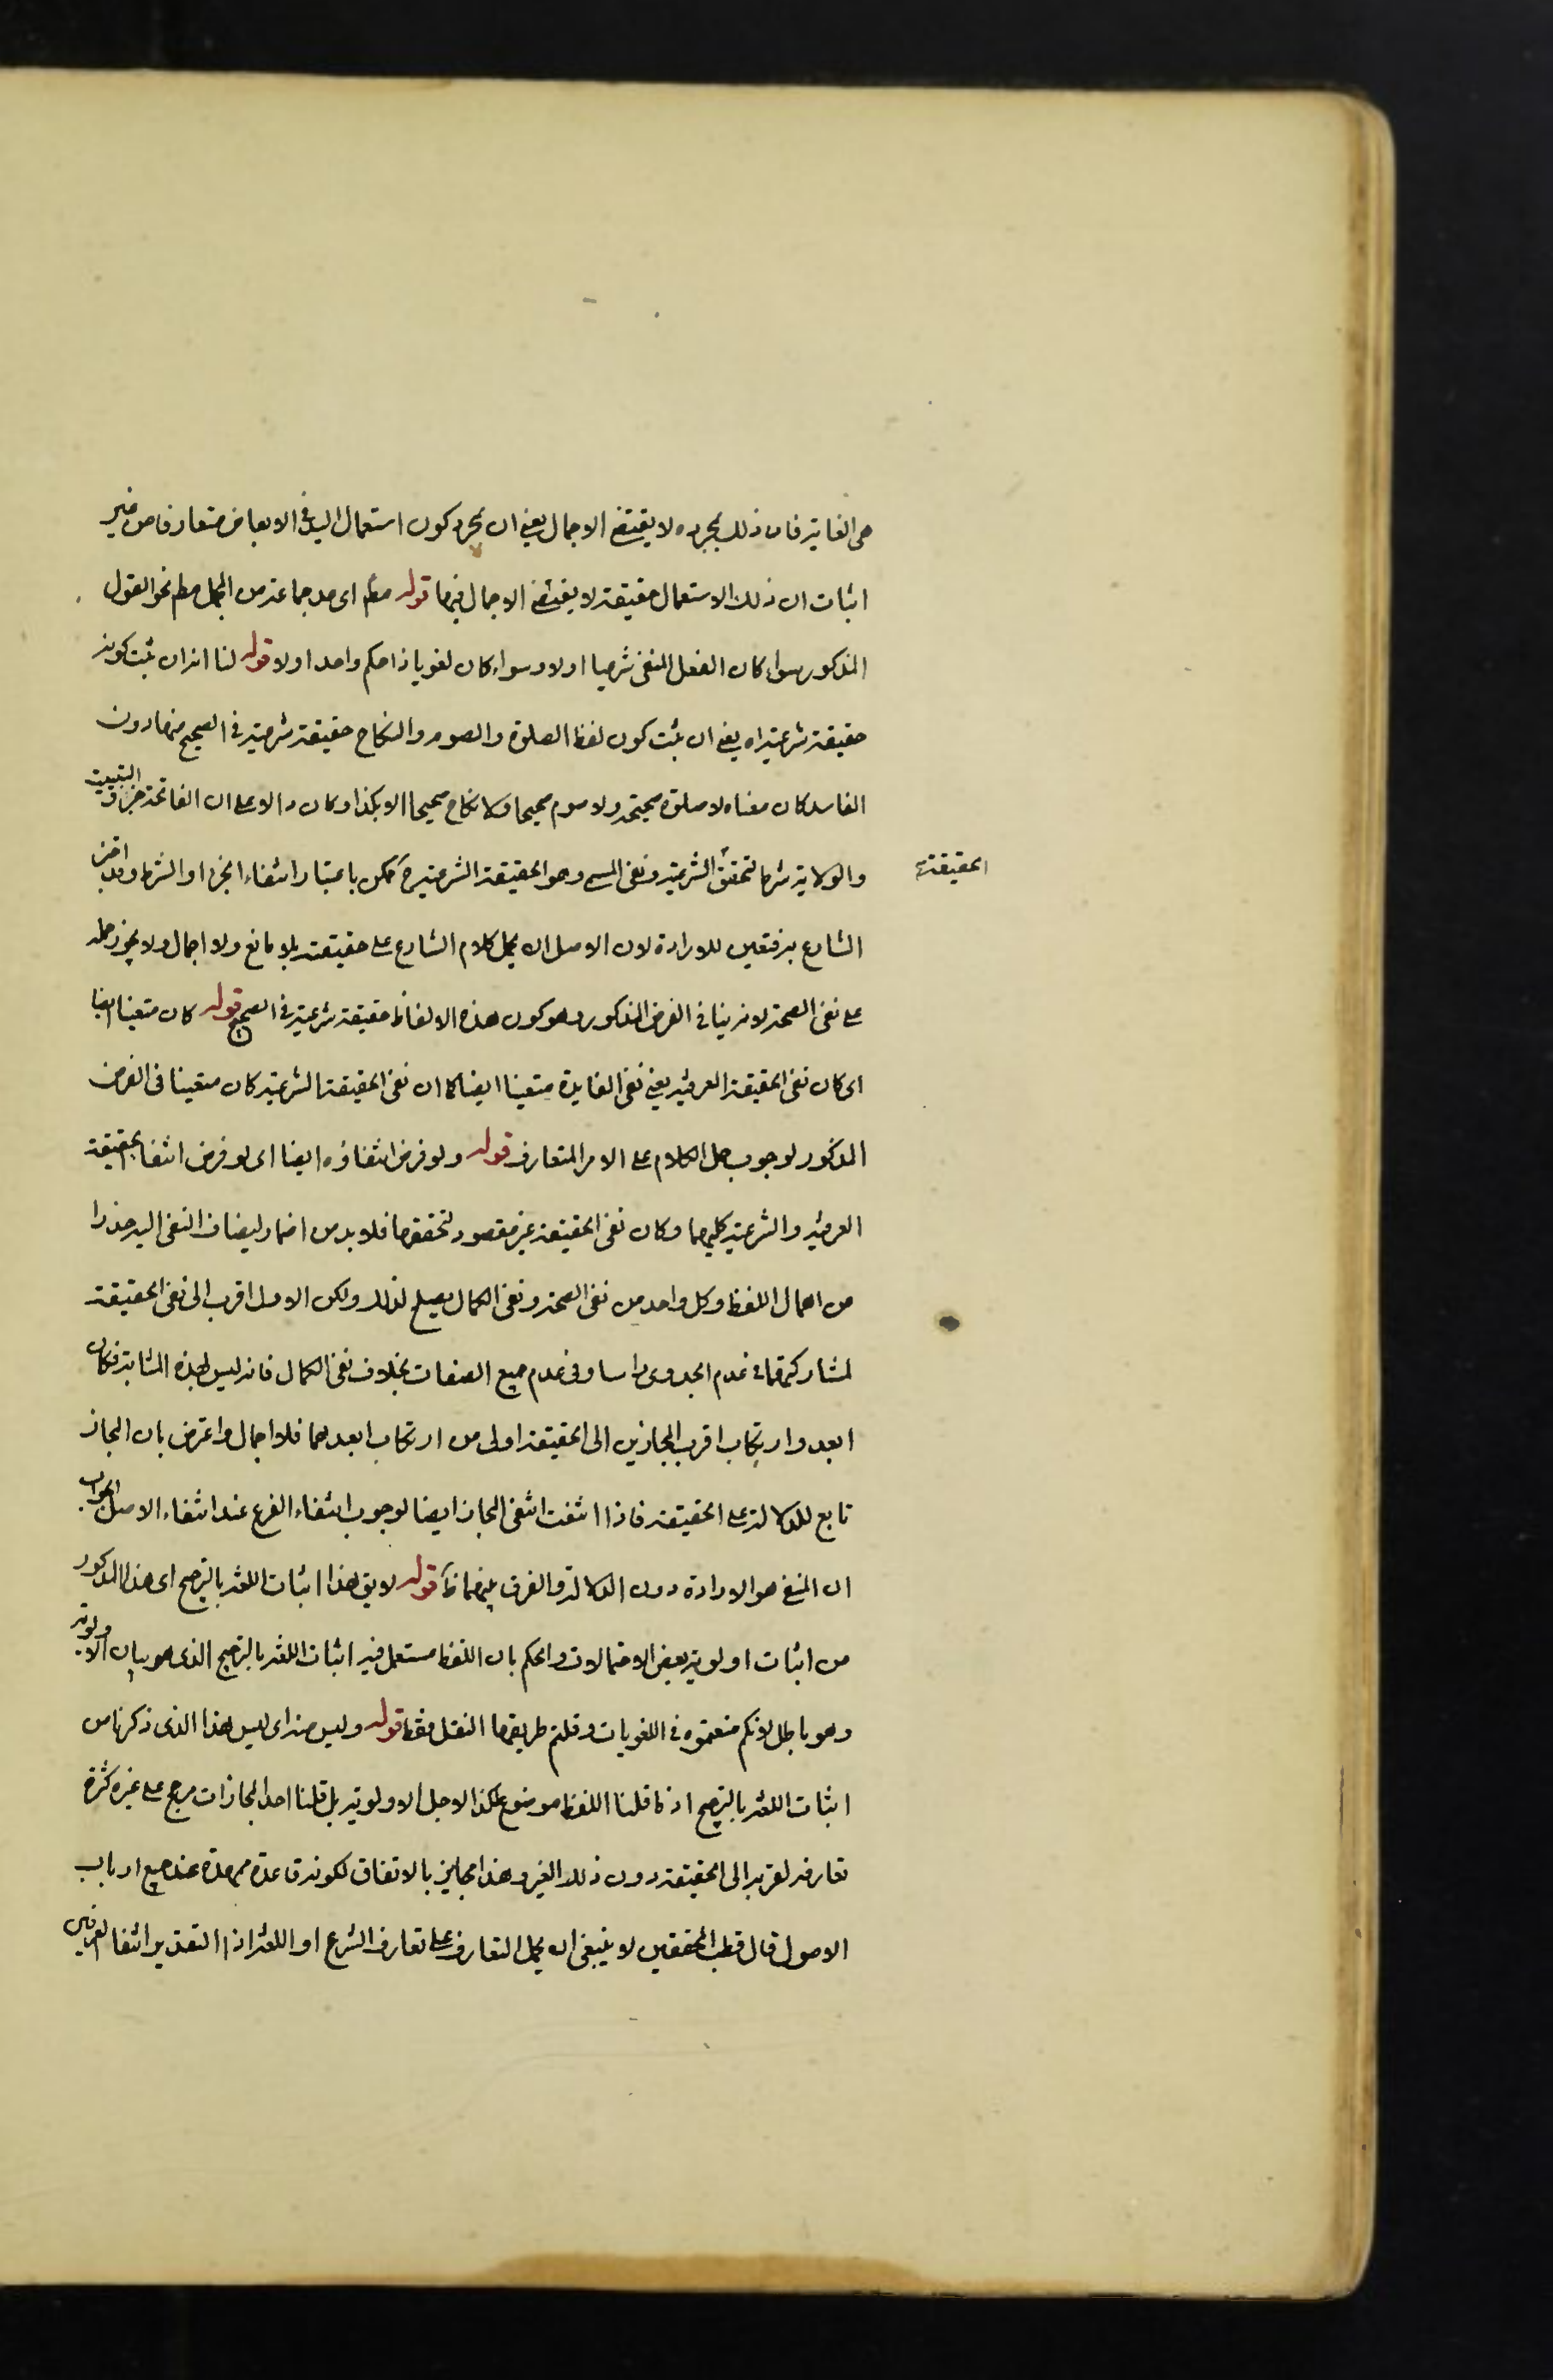 هى الغاية فان ذلك بمجرده لا يقتضى الاجمال يعنى ان مجرد كون استعمال اليد فى الابعاض متعارفا من غير
اثبات ان ذلك الاستعمال حقيقة لا يقتضى الاجمال فيها قوله مطم اى عد جماعة من المجمل مطم نحو القول
المذكور سواء كان الفعل المنفى شرعيا اولا وسواء كان لغويا ذا حكم واحد اولا قوله لنا انه ان ثبت كونه
حقيقة شرعية اه يعنى ان ثبت كون لفظ الصلوة والصوم والنكاح حقيقة شرعية فى الصحيح منها دون
الفاسد كان معناه لا صلوة صحيحة ولا صوم صحيحا ولا نكاح صحيحا الا بكذا وكان دالا على ان الفاتحة جزء والتبييت
والولاية شرط لتحقق الشرعية ونفى المسمى وهو الحقيقة الشرعية ح ممكن باعتبار انتفاء الجزء او الشرط وقد اخبر
الحقيقة
الشارع به فتعين للارادة لان الاصل ان يحمل كلام الشارع على حقيقته بلا مانع ولا اجمال ولا يجوز حمله
على نفى الصحة لانه ينافى الفرض المذكور وهو كون هذه الالفاظ حقيقة شرعية فى الصحيح قوله كان متعينا ايضا
اى كان نفى الحقيقة العرفية يعنى نفى الفايدة متعينا ايضا كما ان نفى الحقيقة الشرعية كان متعينا فى الفرض
المذكور لوجوب حمل الكلام على الامر المتعارف قوله ولو فرض انتفاؤه ايضا اى لو فرض انتفا الحقيقة
العرفية والشرعية كليهما وكان نفى الحقيقة غير مقصود لتحققها فلا بد من اضمار ليضاف النفى اليه حذرا
من اهمال اللفظ وكل واحد من نفى الصحة ونفى الكمال يصلح لذلك ولكن الاول اقرب الى نفى الحقيقة
لمشاركتهما فى عدم الجدوى راسا وفى عدم جميع الصفات بخلاف نفى الكمال فانه ليس بهذه المثابة فكان
ابعد وارتكاب اقرب المجازين الى الحقيقة اولى من ارتكاب ابعدهما فلا اجمال واعترض بان المجاز
تابع للدلالة على الحقيقة فاذا انتفت انتفى المجاز ايضا لوجوب انتفاء الفرع عند انتفاء الاصل الجواب
ان المنفى هو الارادة دون الدلالة والفرق بينهما ظ قوله لا يق هذا اثبات اللغة بالترجيح اى هذا المذكور
من اثبات اولوية بعض الاحتمالات والحكم بان اللفظ مستعمل فيه اثبات اللغة بالترجيح الذى هو بيان الاولوية
وهو باطل لانكم منعتموه فى اللغويات وقلتم طريقها النقل فقط قوله وليس منه اى ليس هذا الذى ذكرنا من
اثبات اللغة بالترجيح اذ ما قلنا اللفظ موضوع لكذا لاجل الاولوية بل قلنا احد المجازات مرجح على غيره كثرة
تعارفه لقربه الى الحقيقة دون ذلك الغير وهذا مجايز بالاتفاق لكونه قاعدة ممهدة عند جميع ارباب
الاصول قال قطب المحققين لا ينبغى ان يحمل التعارف على تعارف الشرع او اللغة اذ التقدير انتفا العرفين